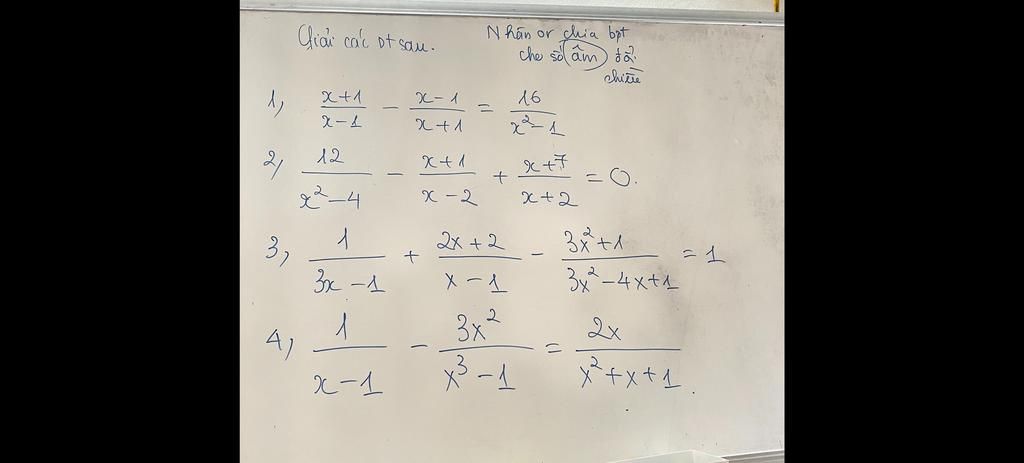 Giải các pt sau.
Nhân or chia bpt
cho số âm đổi
chiều
1, (x+1)/(x-1) - (x-1)/(x+1) = 16/(x²-1)
2, 12/(x²-4) - (x+1)/(x-2) + (x+7)/(x+2) = 0.
3, 1/(3x-1) + (2x+2)/(x-1) - (3x²+1)/(3x²-4x+1) = 1
4, 1/(x-1) - 3x²/(x³-1) = 2x/(x²+x+1).